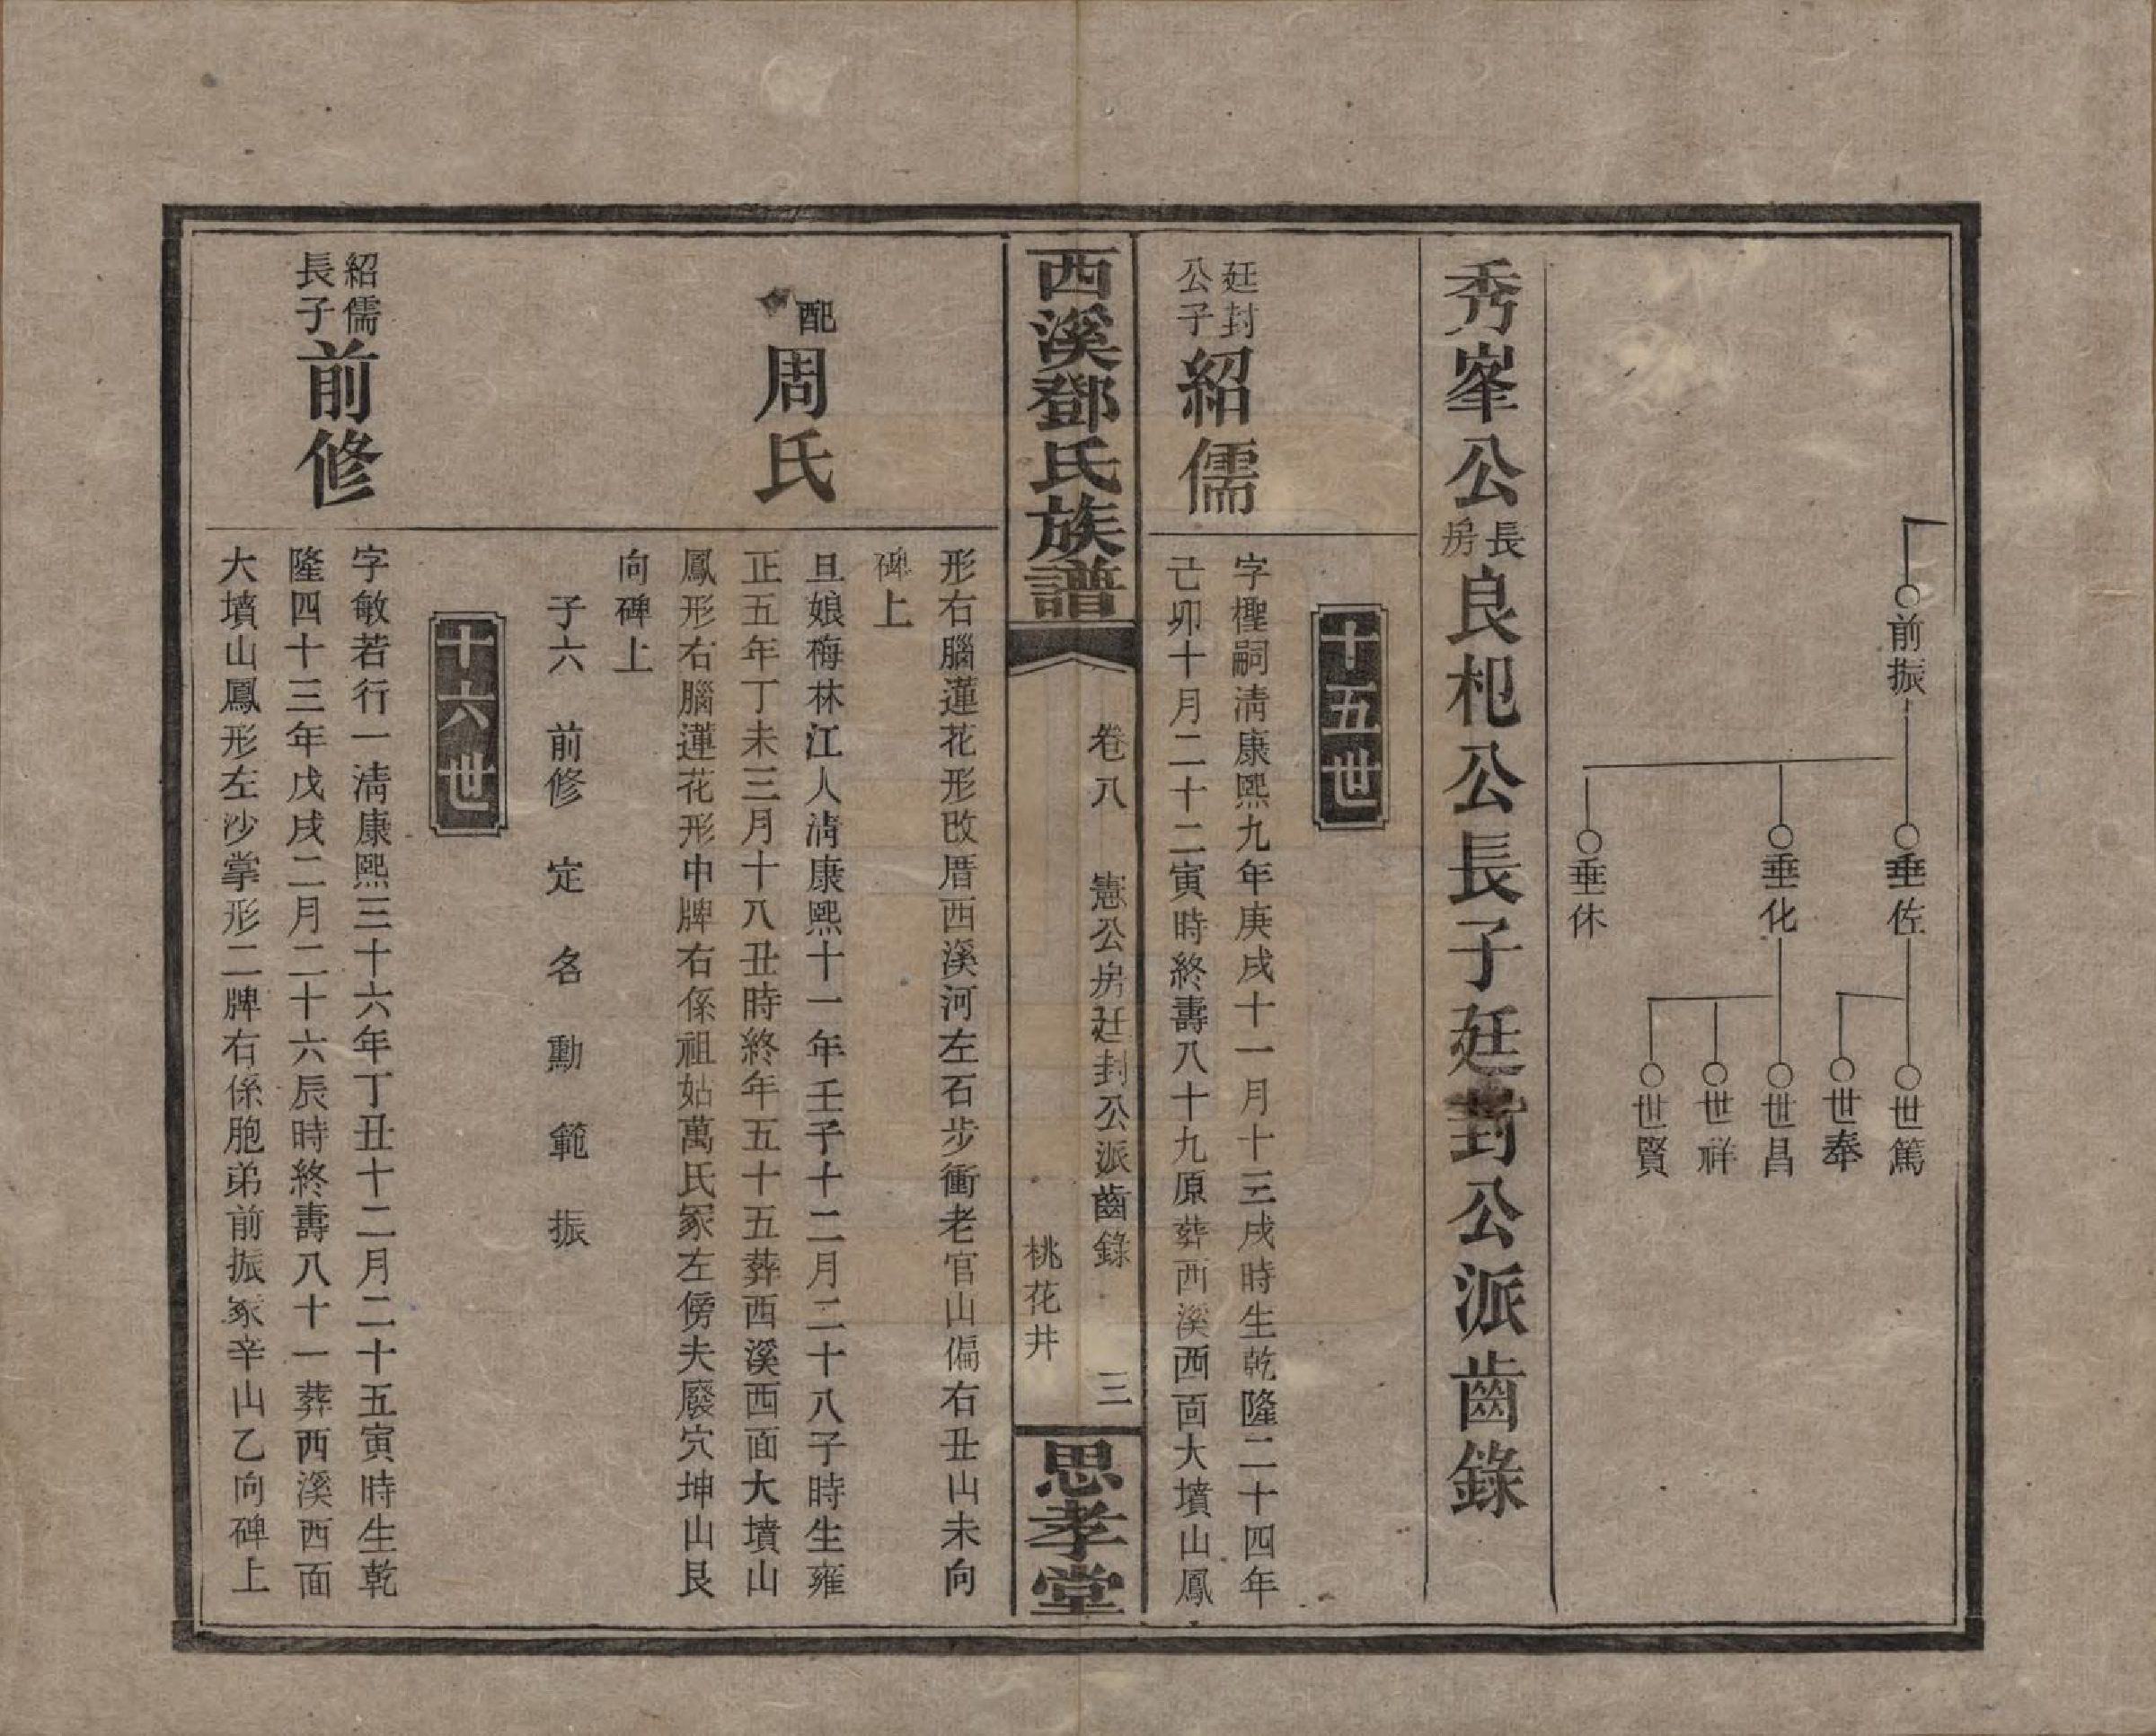 前振
垂佐
垂化
垂休
世篤
世奉
世昌
世祥
世賢
秀峯公長房良杞公長子廷封公派齒錄
十五世
廷封公子紹儒
字檉嗣淸康熙九年庚戌十一月十三戌時生乾隆二十四年
己卯十月二十二寅時終壽八十九原葬西溪西面大墳山鳳
西溪鄧氏族譜
卷八　憲公房廷封公派齒錄　三
桃花井
思孝堂
形右腦蓮花形改厝西溪河左石步衝老官山偏右丑山未向
碑上
配周氏
旦娘梅林江人淸康熙十一年壬子十二月二十八子時生雍
正五年丁未三月十八丑時終年五十五葬西溪西面大墳山
鳳形右腦蓮花形中牌右係祖姑萬氏冢左傍夫廢穴坤山艮
向碑上
子六　前修　定　名　勳　範　振
十六世
紹儒長子前修
字敏若行一淸康熙三十六年丁丑十二月二十五寅時生乾
隆四十三年戊戌二月二十六辰時終壽八十一葬西溪西面
大墳山鳳形左沙掌形二牌右係胞弟前振冢辛山乙向碑上